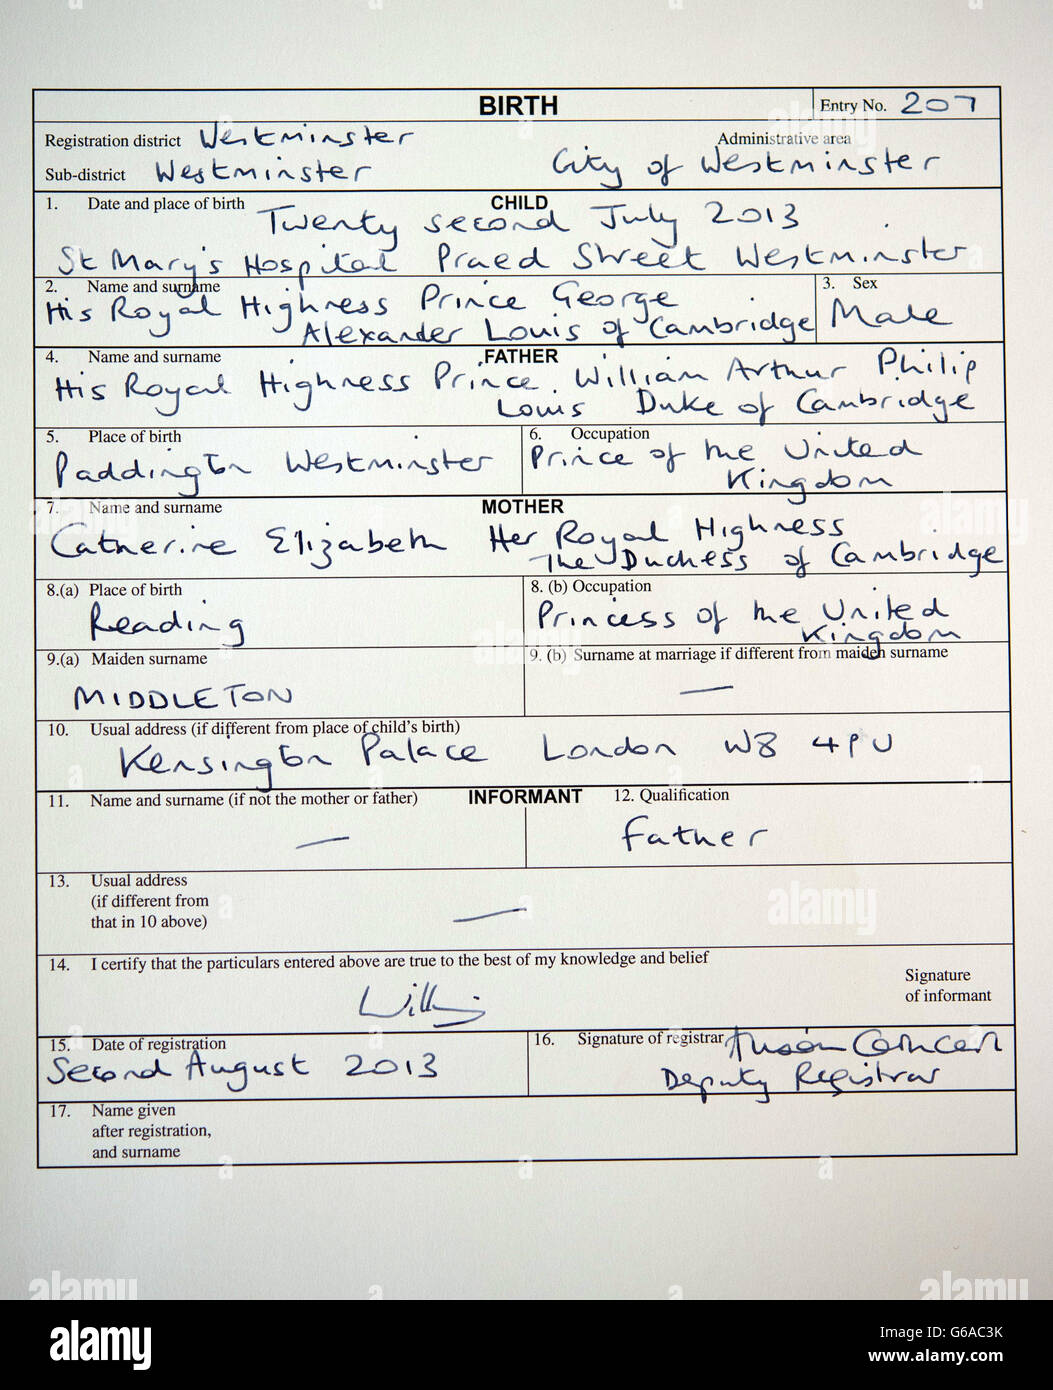 BIRTH
Entry No. 207
Registration district Westminster
Administrative area
Sub-district Westminster
City of Westminster
1. Date and place of birth
CHILD
Twenty second July 2013
St Mary's Hospital Praed Street Westminster
2. Name and surname
His Royal Highness Prince George
Alexander Louis of Cambridge
3. Sex
Male
4. Name and surname
FATHER
His Royal Highness Prince William Arthur Philip
Louis Duke of Cambridge
5. Place of birth
Paddington Westminster
6. Occupation
Prince of the United
Kingdom
7. Name and surname
MOTHER
Catherine Elizabeth Her Royal Highness
The Duchess of Cambridge
8.(a) Place of birth
Reading
8. (b) Occupation
Princess of the United
Kingdom
9.(a) Maiden surname
MIDDLETON
9. (b) Surname at marriage if different from maiden surname
—
10. Usual address (if different from place of child's birth)
Kensington Palace London W8 4PU
11. Name and surname (if not the mother or father)
—
INFORMANT
12. Qualification
Father
13. Usual address
(if different from
that in 10 above)
—
14. I certify that the particulars entered above are true to the best of my knowledge and belief
Signature
of informant
15. Date of registration
Second August 2013
16. Signature of registrar
Deputy Registrar
17. Name given
after registration,
and surname
alamy
Image ID: G6AC3K
www.alamy.com